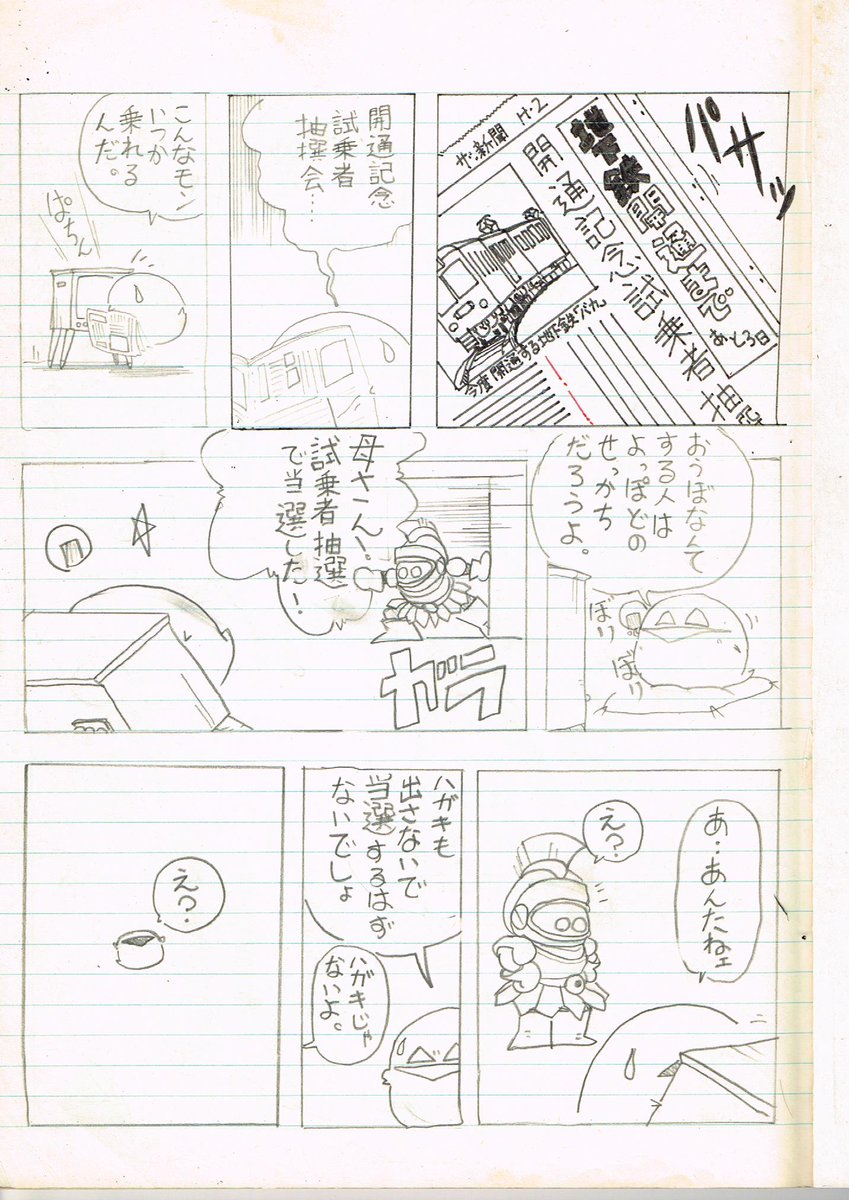 パサッ
ザ・新聞 H・2
地下鉄開通まで
あと3日
開通記念試乗者抽選
今度開通する地下鉄「バカ」
開通記念
試乗者
抽撰会…
こんなモン
いつか
乗れる
んだ。
ぱちん
おうぼなんて
する人は
よっぽどの
せっかち
だろうよ。
ぼり
ぼり
母さん!
試乗者抽選
で当選した!
ガラ
あ‥あんたねェ
え?
ハガキも
出さないで
当選するはず
ないでしょ
ハガキじゃ
ないよ。
え?